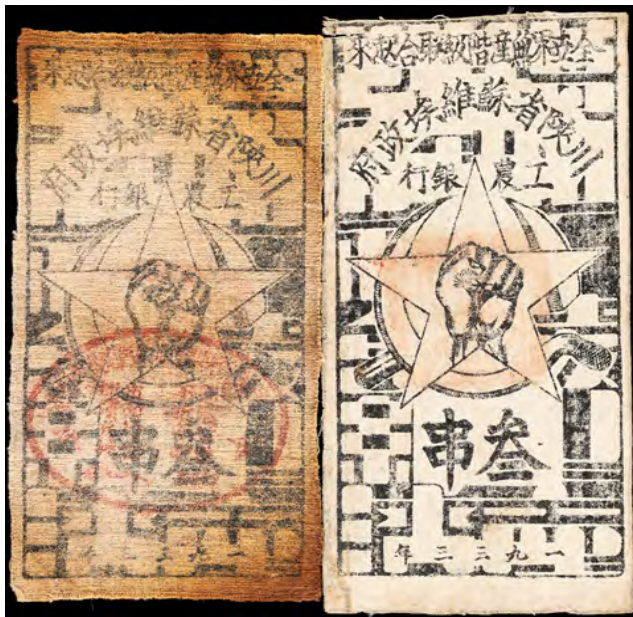 全世界無產階級聯合起來
川陝省蘇維埃政府
工農銀行
叁串
一九三三年
全世界無產階級聯合起來
川陝省蘇維埃政府
工農銀行
叁串
一九三三年